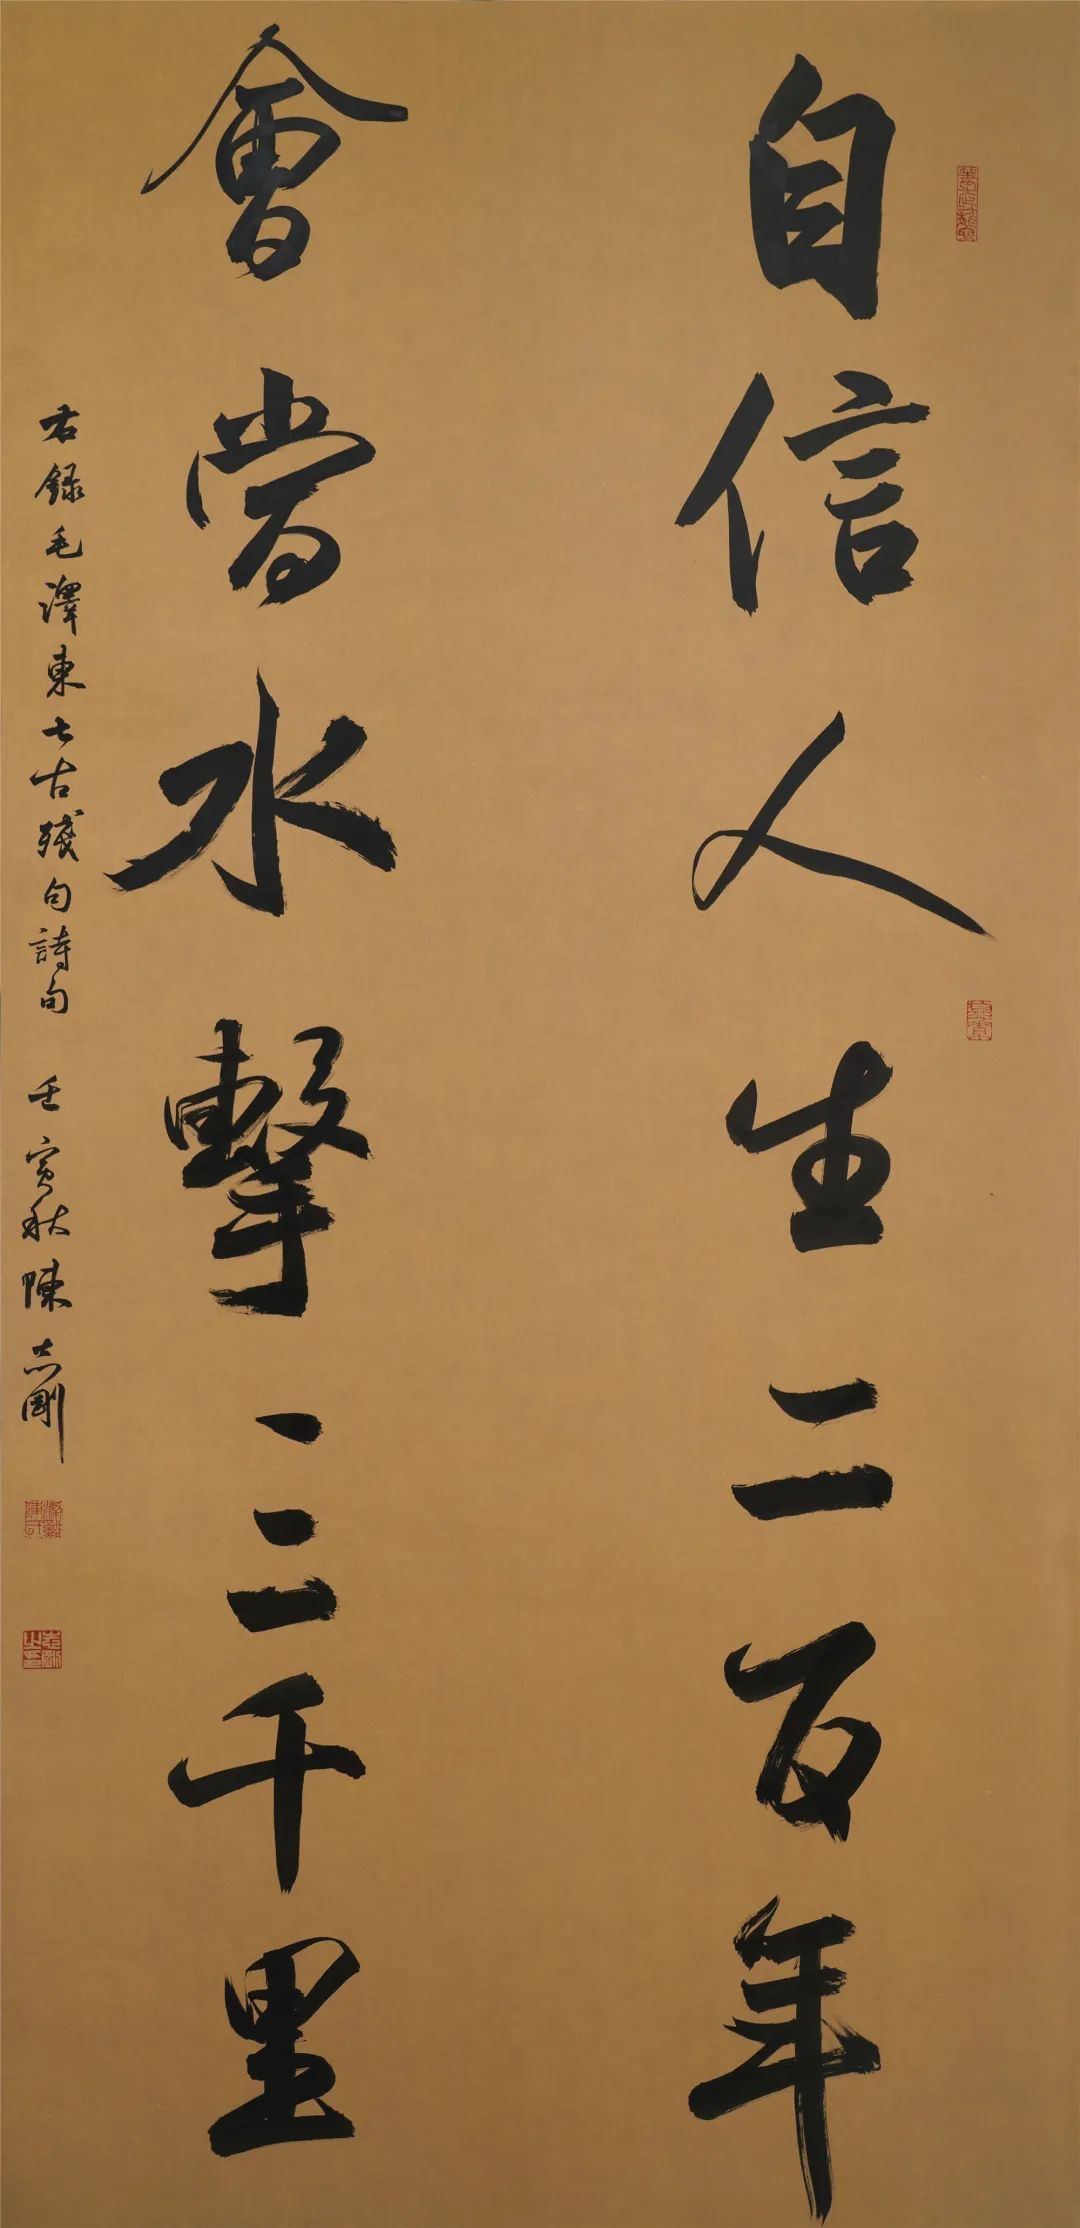 自信人生二百年
會當水擊三千里
右録毛澤東七古殘句詩句 壬寅秋陳志剛